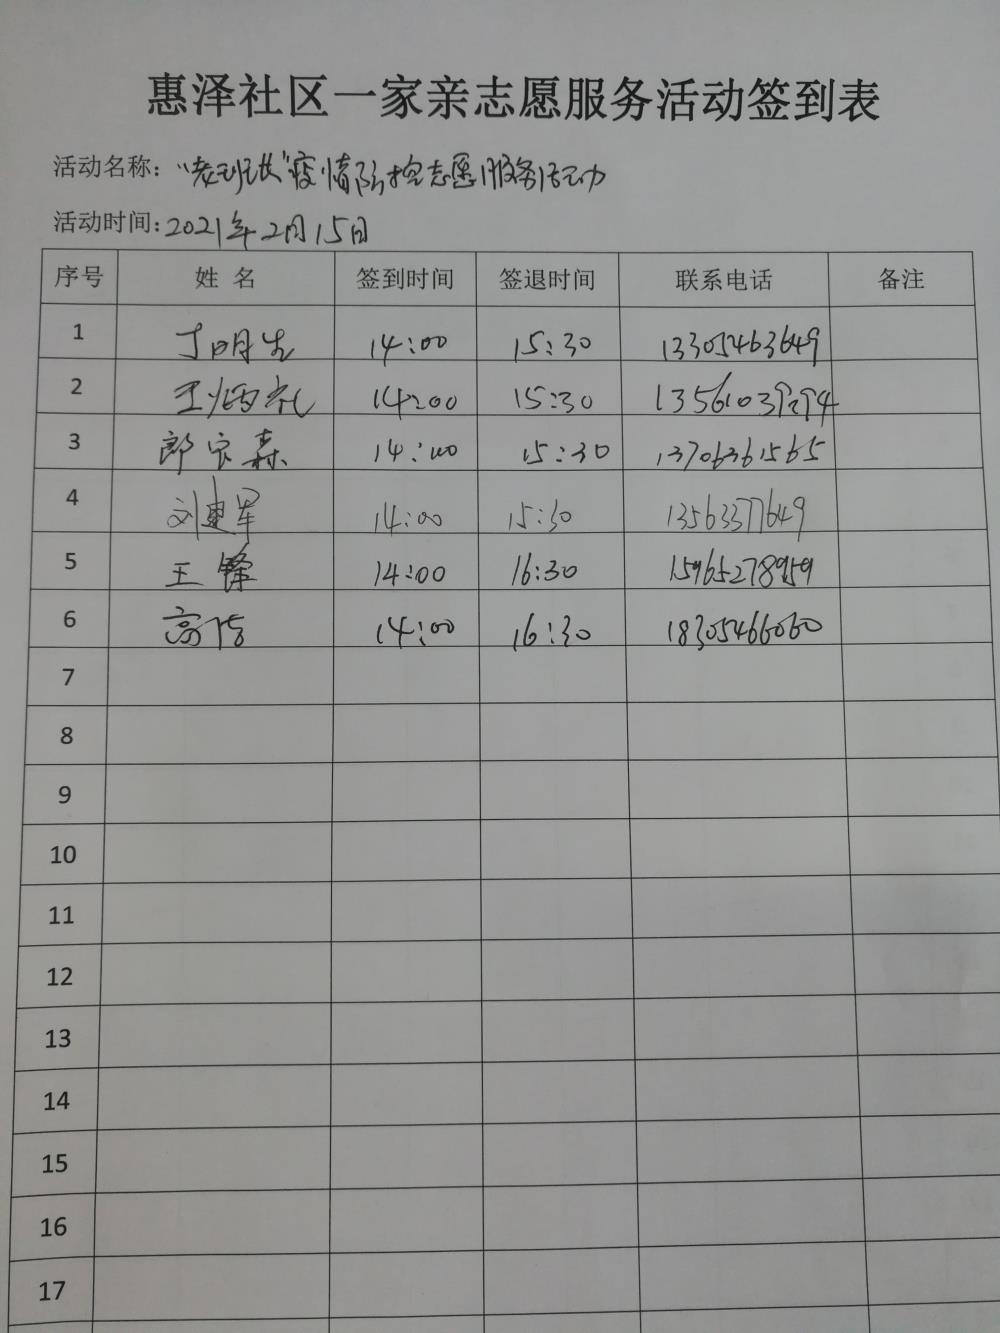 惠泽社区一家亲志愿服务活动签到表
活动名称："老班长"疫情防控志愿服务活动
活动时间：2021年2月15日
序号 姓名 签到时间 签退时间 联系电话 备注
1 丁明先 14:00 15:30 13305463649
2 王炳礼 14:00 15:30 13561039294
3 郎宗森 14:00 15:30 13706361565
4 刘建军 14:00 15:30 13563377649
5 王锋 14:00 16:30 15965278959
6 高 14:00 16:30 18305466060
7
8
9
10
11
12
13
14
15
16
17